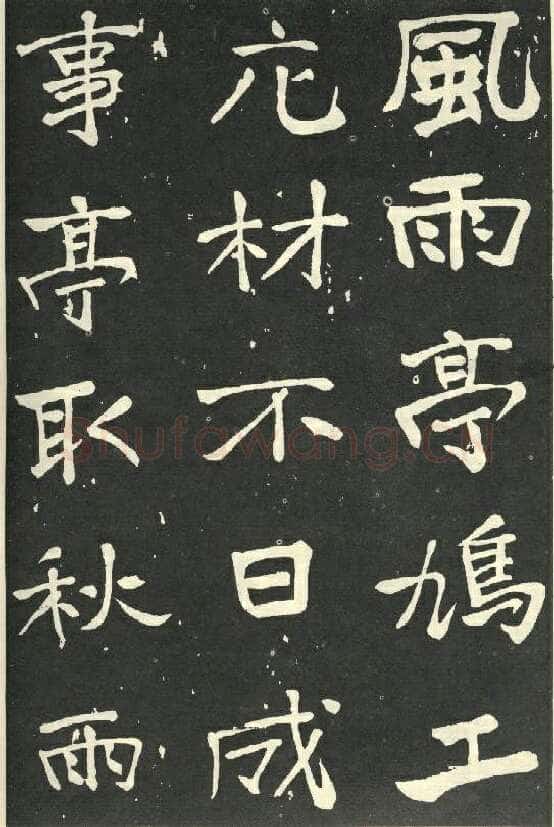 風雨亭鳩工
庀材不日成
事亭取秋雨
shufawang.cn